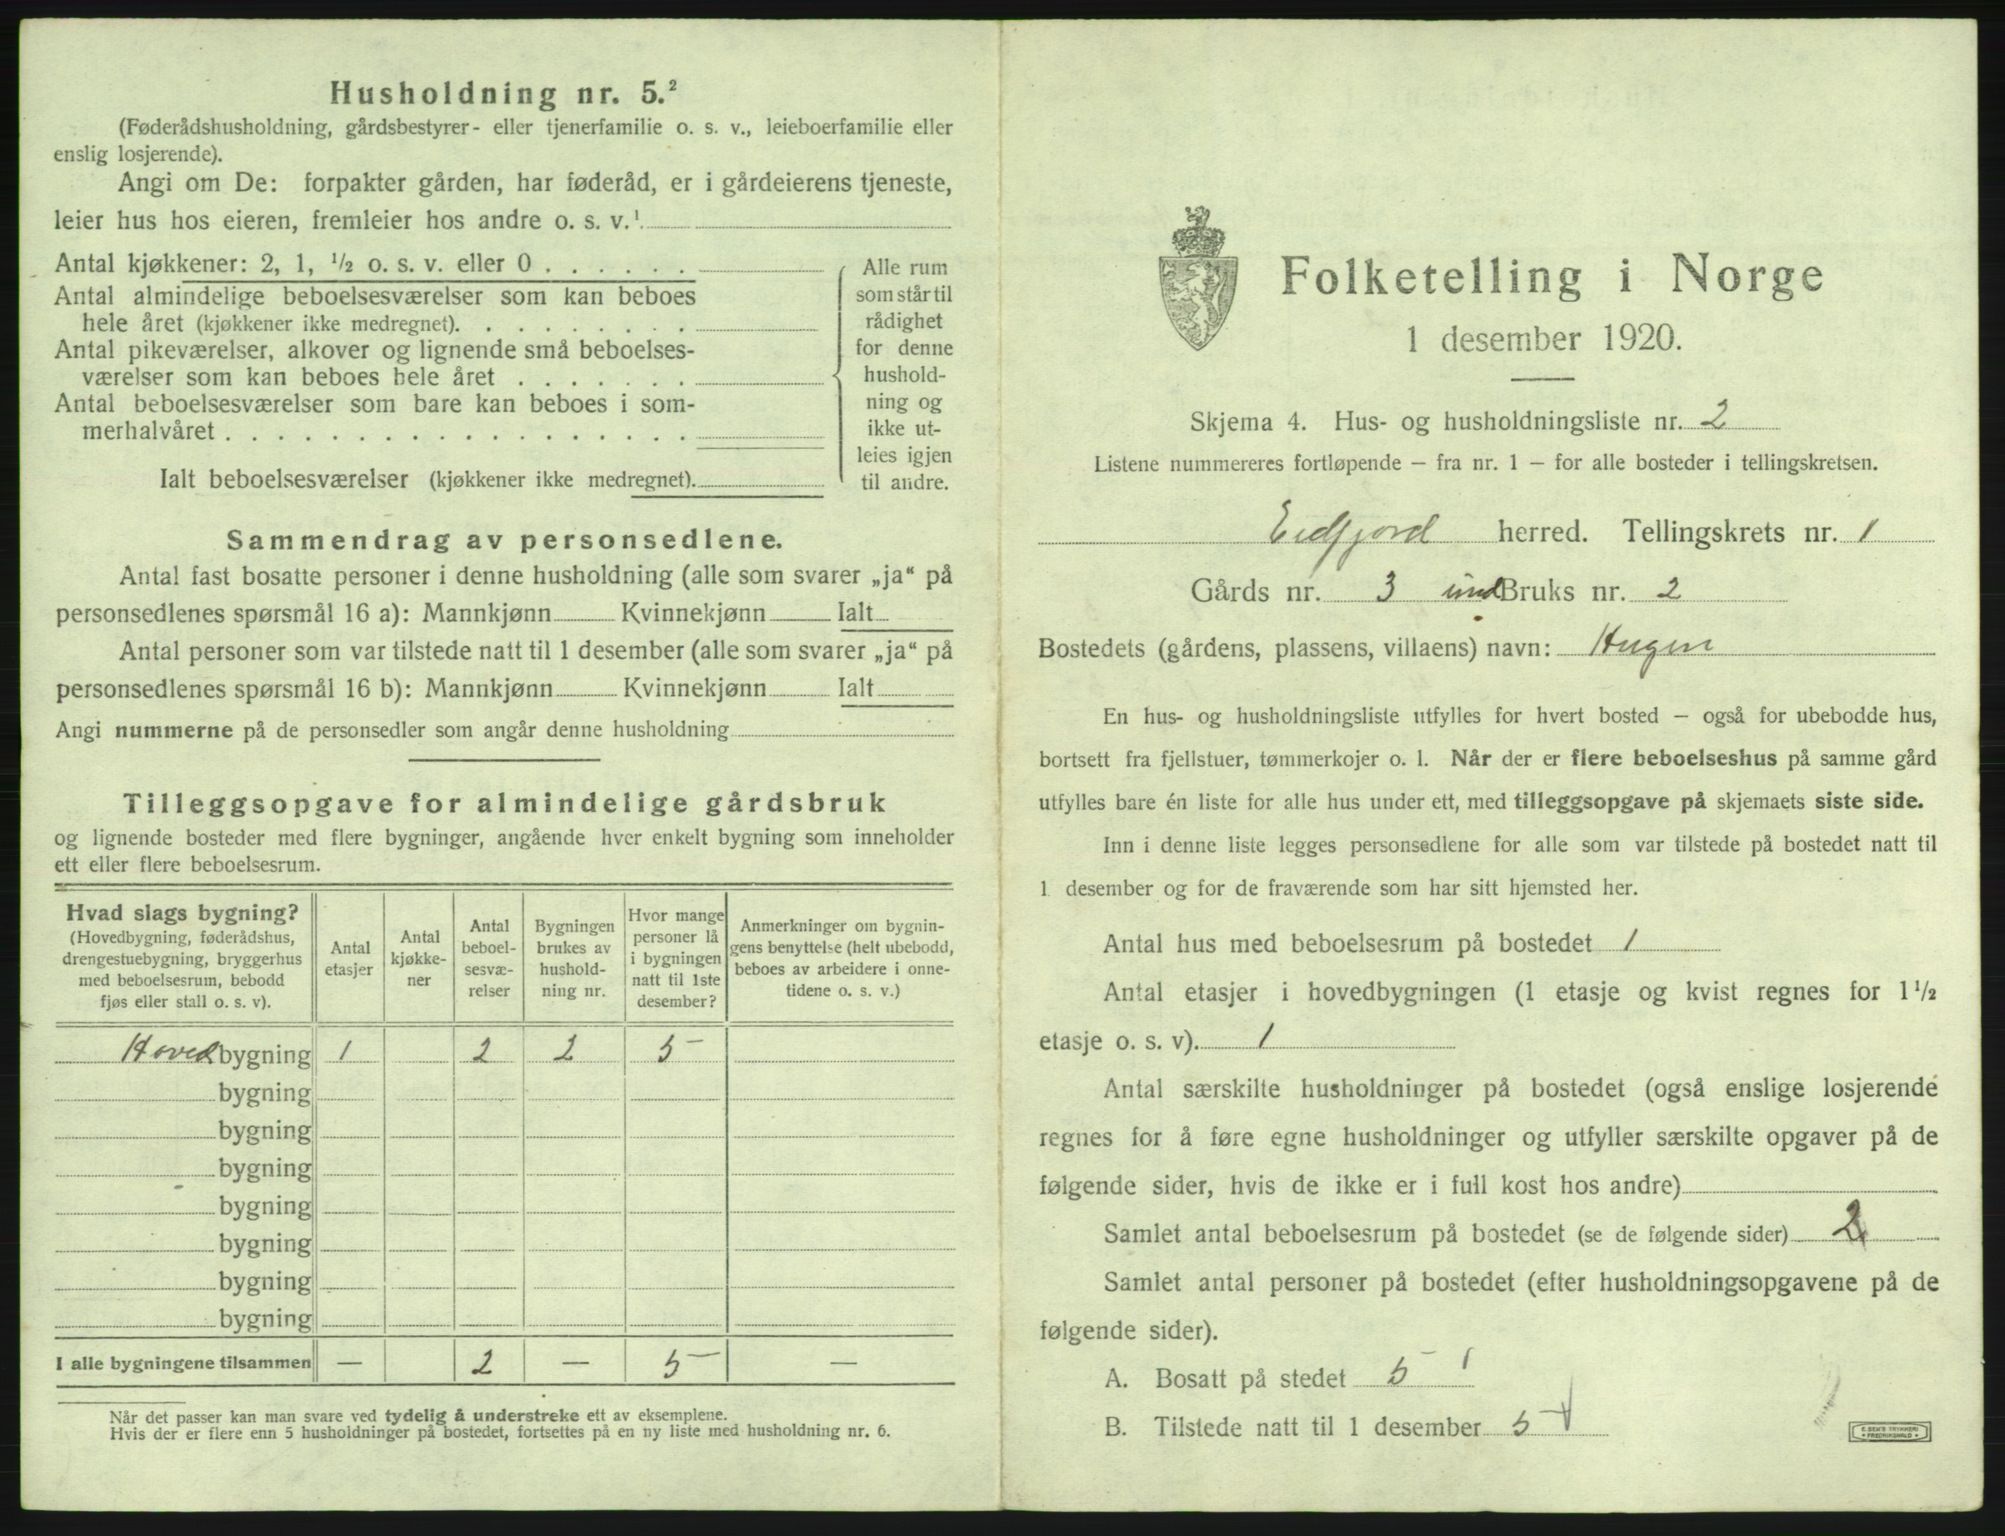 Husholdning nr. 5.²
(Føderådshusholdning, gårdsbestyrer- eller tjenerfamilie o. s. v., leieboerfamilie eller
enslig losjerende).
Angi om De: forpakter gården, har føderåd, er i gårdeierens tjeneste,
leier hus hos eieren, fremleier hos andre o. s. v.¹
Antal kjøkkener: 2, 1, ½ o. s. v. eller 0 . . . . . .
Antal almindelige beboelsesværelser som kan beboes
hele året (kjøkkener ikke medregnet). . . . . . . . .
Antal pikeværelser, alkover og lignende små beboelses-
værelser som kan beboes hele året . . . . . . .
Antal beboelsesværelser som bare kan beboes i som-
merhalvåret . . . . . . . . . . . . . . . . . .
Ialt beboelsesværelser (kjøkkener ikke medregnet).
Alle rum
som står til
rådighet
for denne
hushold-
ning og
ikke ut-
leies igjen
til andre.
Sammendrag av personsedlene.
Antal fast bosatte personer i denne husholdning (alle som svarer „ja“ på
personsedlenes spørsmål 16 a): Mannkjønn Kvinnekjønn Ialt
Antal personer som var tilstede natt til 1 desember (alle som svarer „ja“ på
personsedlenes spørsmål 16 b): Mannkjønn Kvinnekjønn Ialt
Angi nummerne på de personsedler som angår denne husholdning
Tilleggsopgave for almindelige gårdsbruk
og lignende bosteder med flere bygninger, angående hver enkelt bygning som inneholder
ett eller flere beboelsesrum.
Hvad slags bygning?
(Hovedbygning, føderådshus,
drengestuebygning, bryggerhus
med beboelsesrum, bebodd
fjøs eller stall o. s. v).
Antal
etasjer
Antal
kjøkke-
ner
Antal
beboel-
sesvæ-
relser
Bygningen
brukes av
hushold-
ning nr.
Hvor mange
personer lå
i bygningen
natt til 1ste
desember?
Anmerkninger om bygnin-
gens benyttelse (helt ubebodd,
beboes av arbeidere i onne-
tidene o. s. v.)
Hovedbygning 1 2 2 5
bygning
bygning
bygning
bygning
bygning
bygning
bygning
I alle bygningene tilsammen — 2 — 5 —
Når det passer kan man svare ved tydelig å understreke ett av eksemplene.
Hvis der er flere enn 5 husholdninger på bostedet, fortsettes på en ny liste med husholdning nr. 6.
Folketelling i Norge
1 desember 1920.
Skjema 4. Hus- og husholdningsliste nr. 2
Listene nummereres fortløpende — fra nr. 1 — for alle bosteder i tellingskretsen.
Eidfjord herred. Tellingskrets nr. 1
Gårds nr. 3 und Bruks nr. 2
Bostedets (gårdens, plassens, villaens) navn: Hugen
En hus- og husholdningsliste utfylles for hvert bosted — også for ubebodde hus,
bortsett fra fjellstuer, tømmerkojer o. l. Når der er flere beboelseshus på samme gård
utfylles bare én liste for alle hus under ett, med tilleggsopgave på skjemaets siste side.
Inn i denne liste legges personsedlene for alle som var tilstede på bostedet natt til
1 desember og for de fraværende som har sitt hjemsted her.
Antal hus med beboelsesrum på bostedet 1
Antal etasjer i hovedbygningen (1 etasje og kvist regnes for 1½
etasje o. s. v). 1
Antal særskilte husholdninger på bostedet (også enslige losjerende
regnes for å føre egne husholdninger og utfyller særskilte opgaver på de
følgende sider, hvis de ikke er i full kost hos andre)
Samlet antal beboelsesrum på bostedet (se de følgende sider) 2
Samlet antal personer på bostedet (efter husholdningsopgavene på de
følgende sider).
A. Bosatt på stedet 5
B. Tilstede natt til 1 desember 5
E. SEM'S TRYKKERI
FREDRIKSHALD